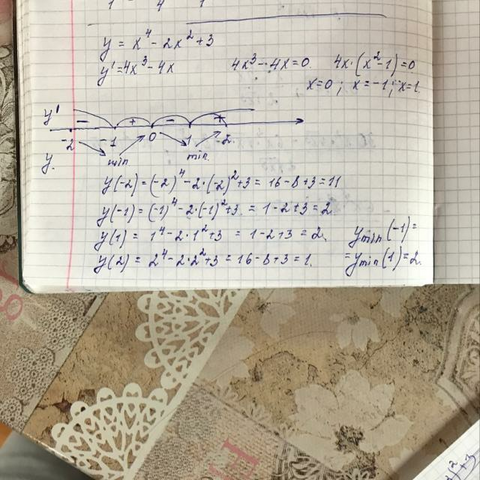 y = x⁴ - 2x² + 3
y' = 4x³ - 4x    4x³ - 4x = 0    4x·(x² - 1) = 0
x = 0; x = -1; x = 1
y' - + - +
-2 -1 0 1 2
y min min
y(-2) = (-2)⁴ - 2·(-2)² + 3 = 16 - 8 + 3 = 11
y(-1) = (-1)⁴ - 2·(-1)² + 3 = 1 - 2 + 3 = 2
y(1) = 1⁴ - 2·1² + 3 = 1 - 2 + 3 = 2    y min (-1) =
y(2) = 2⁴ - 2·2² + 3 = 16 - 8 + 3 = 1    = y min (1) = 2